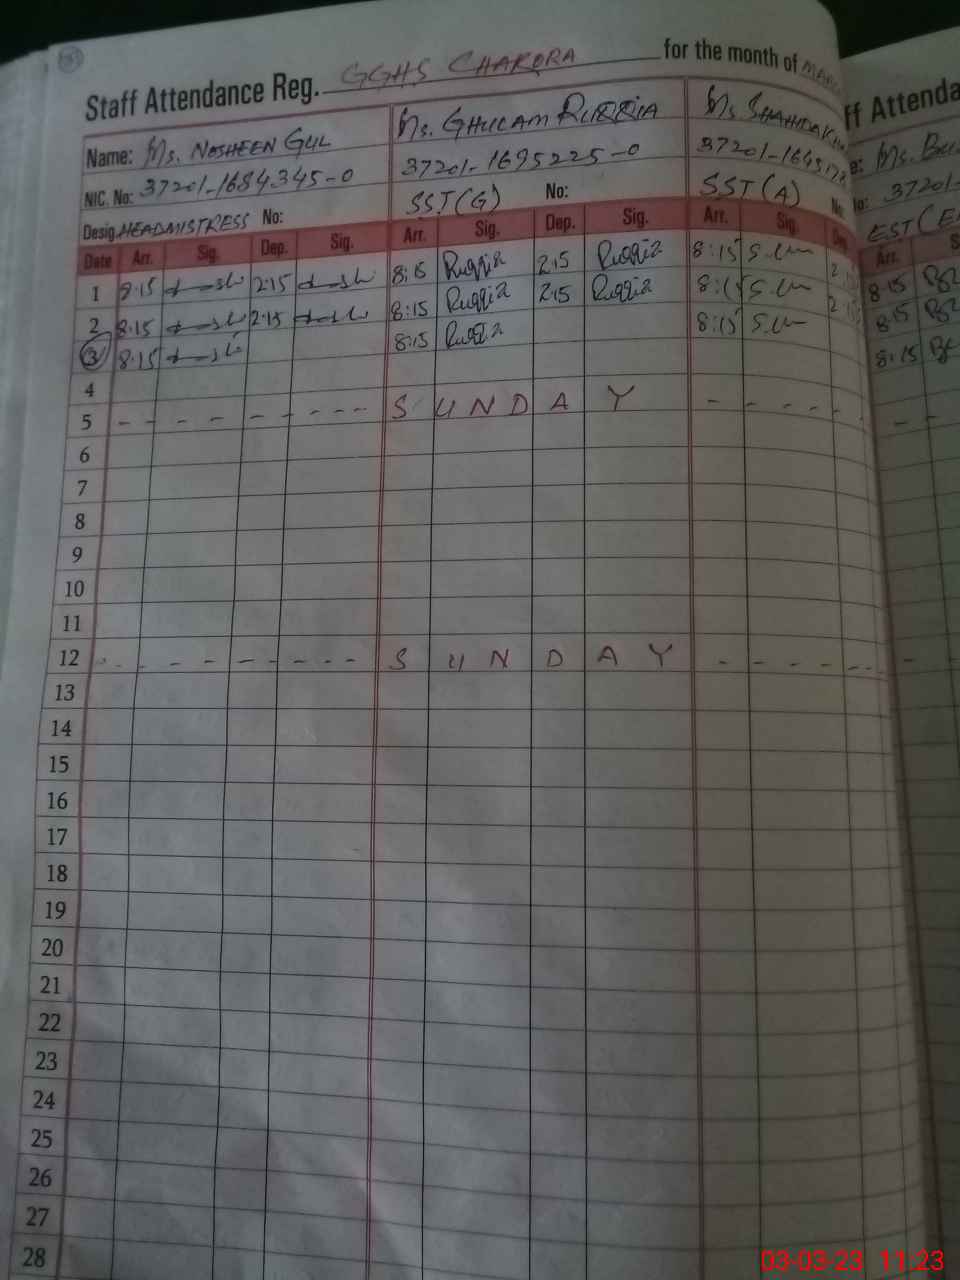 Staff Attendance Reg. GGHS CHAKORA for the month of
Name: Ms. NOSHEEN GUL Ms. GHULAM RUQQIA Ms. SHAHIDA
NIC. No: 37201-1684345-0 37201-1695225-0 37201-1645178
Desig. HEADMISTRESS No: SST(G) No: SST(A) No:
Date Arr. Sig. Dep. Sig. Arr. Sig. Dep. Sig. Arr. Sig.
1 8:15 2:15 8:15 Ruqqia 2:15 Ruqqia 8:15
2 8:15 2:15 8:15 Ruqqia 2:15 Ruqqia 8:15
3 8:15 8:15 Ruqqia 8:15
4
5 - - - - - - - - - S U N D A Y - - - - -
6
7
8
9
10
11
12 - - - - - - - - - S U N D A Y - - - - - -
13
14
15
16
17
18
19
20
21
22
23
24
25
26
27
28
ff Attenda
Ms.
37201-
EST(
Arr. S
8:15
8:15
8:15
03-03-23 11:23